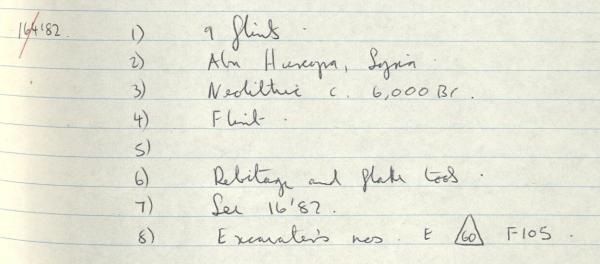 164'82. 1) 9 flints.
2) Abu Hureyra, Syria.
3) Neolithic c. 6,000 BC.
4) Flint.
5)
6) Debitage and flake tools.
7) See 16'82.
8) Excavater's nos. E 60 F105.